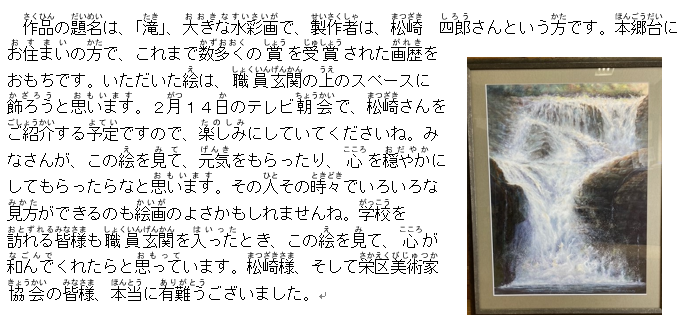 作品の題名は、「滝」、大きな水彩画で、製作者は、松崎　四郎さんという方です。本郷台に
お住まいの方で、これまで数多くの賞を受賞された画歴を
おもちです。いただいた絵は、職員玄関の上のスペースに
飾ろうと思います。２月１４日のテレビ朝会で、松崎さんを
ご紹介する予定ですので、楽しみにしていてくださいね。み
なさんが、この絵を見て、元気をもらったり、心を穏やかに
してもらったらなと思います。その人その時々でいろいろな
見方ができるのも絵画のよさかもしれませんね。学校を
訪れる皆様も職員玄関を入ったとき、この絵を見て、心が
和んでくれたらと思っています。松崎様、そして栄区美術家
協会の皆様、本当に有難うございました。